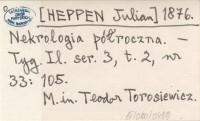 [HEPPEN Julian] 1876.
Nekrologia półroczna. —
Tyg. Il. ser. 3, t. 2, nr
33: 105.
M. in. Teodor Torosiewicz.